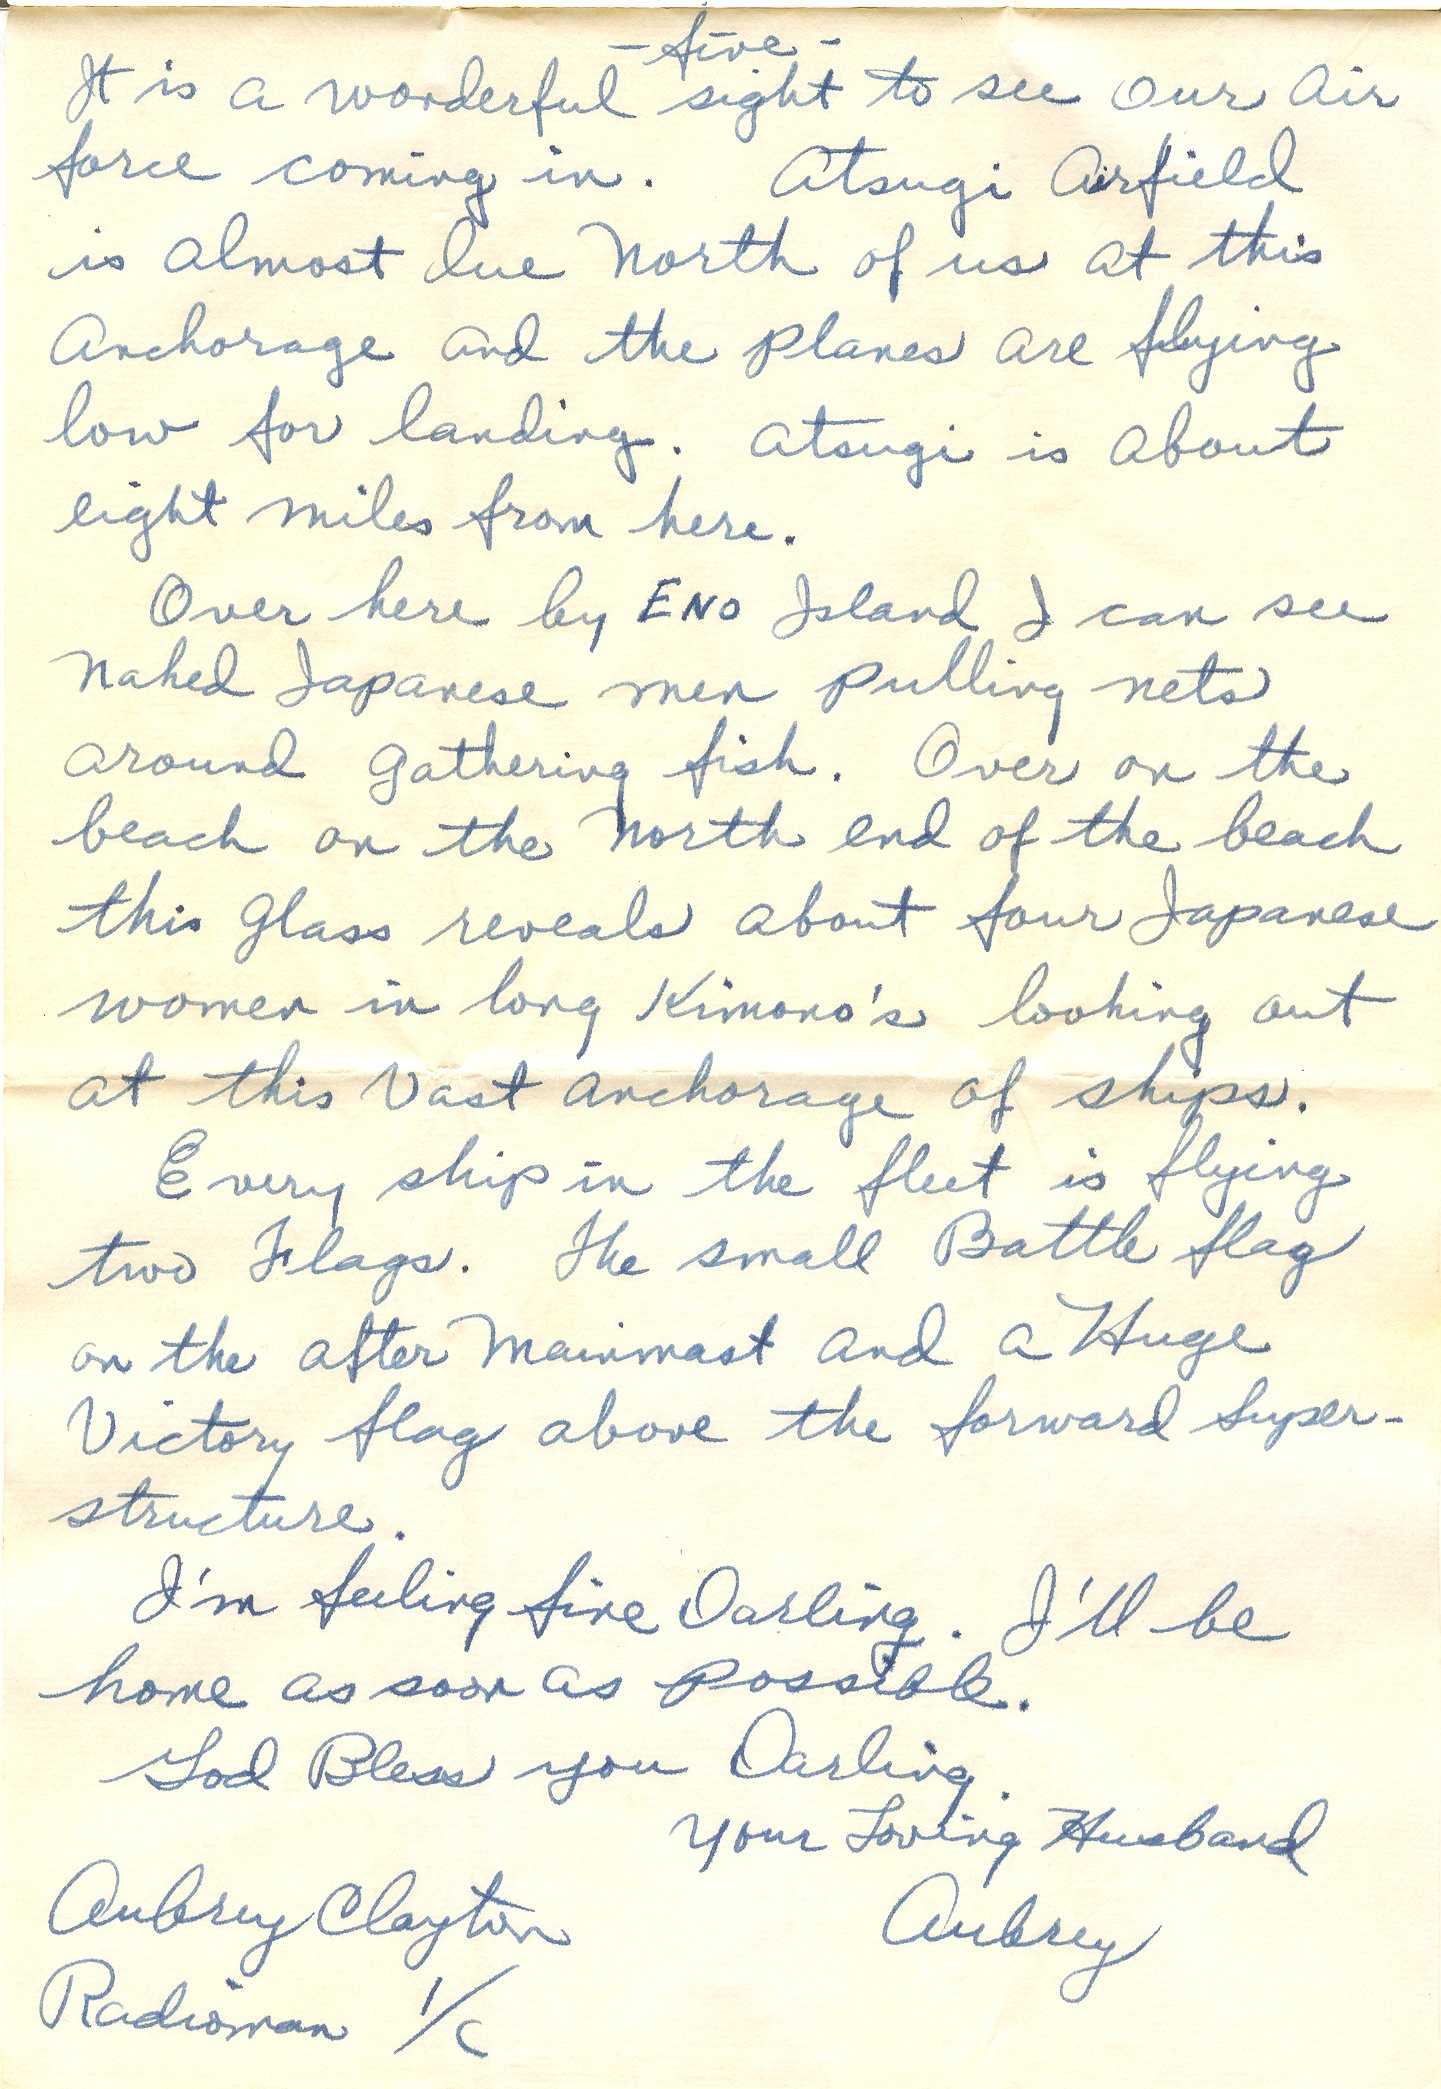 - five -
It is a wonderful sight to see our air
force coming in. Atsugi Airfield
is almost due North of us at this
Anchorage and the planes are flying
low for landing. Atsugi is about
eight miles from here.
Over here by ENO Island I can see
Naked Japanese men pulling nets
around gathering fish. Over on the
beach on the North end of the beach
this glass reveals about four Japanese
women in long Kimono's looking out
at this Vast anchorage of ships.
Every ship in the fleet is flying
two Flags. The small Battle flag
on the after Mainmast and a Huge
Victory flag above the forward Super-
structure.
I'm feeling fine Darling. I'll be
home as soon as possible.
God Bless you Darling.
Your Loving Husband
Aubrey
Aubrey Clayton
Radioman 1/c